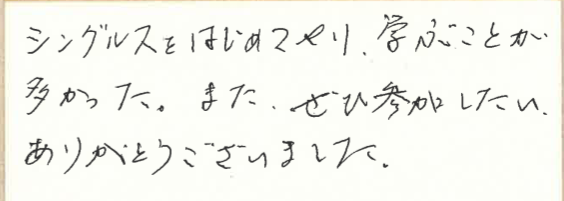 シングルスをはじめてやり、学ぶことが
多かった。また、ぜひ参加したい、
ありがとうございました。